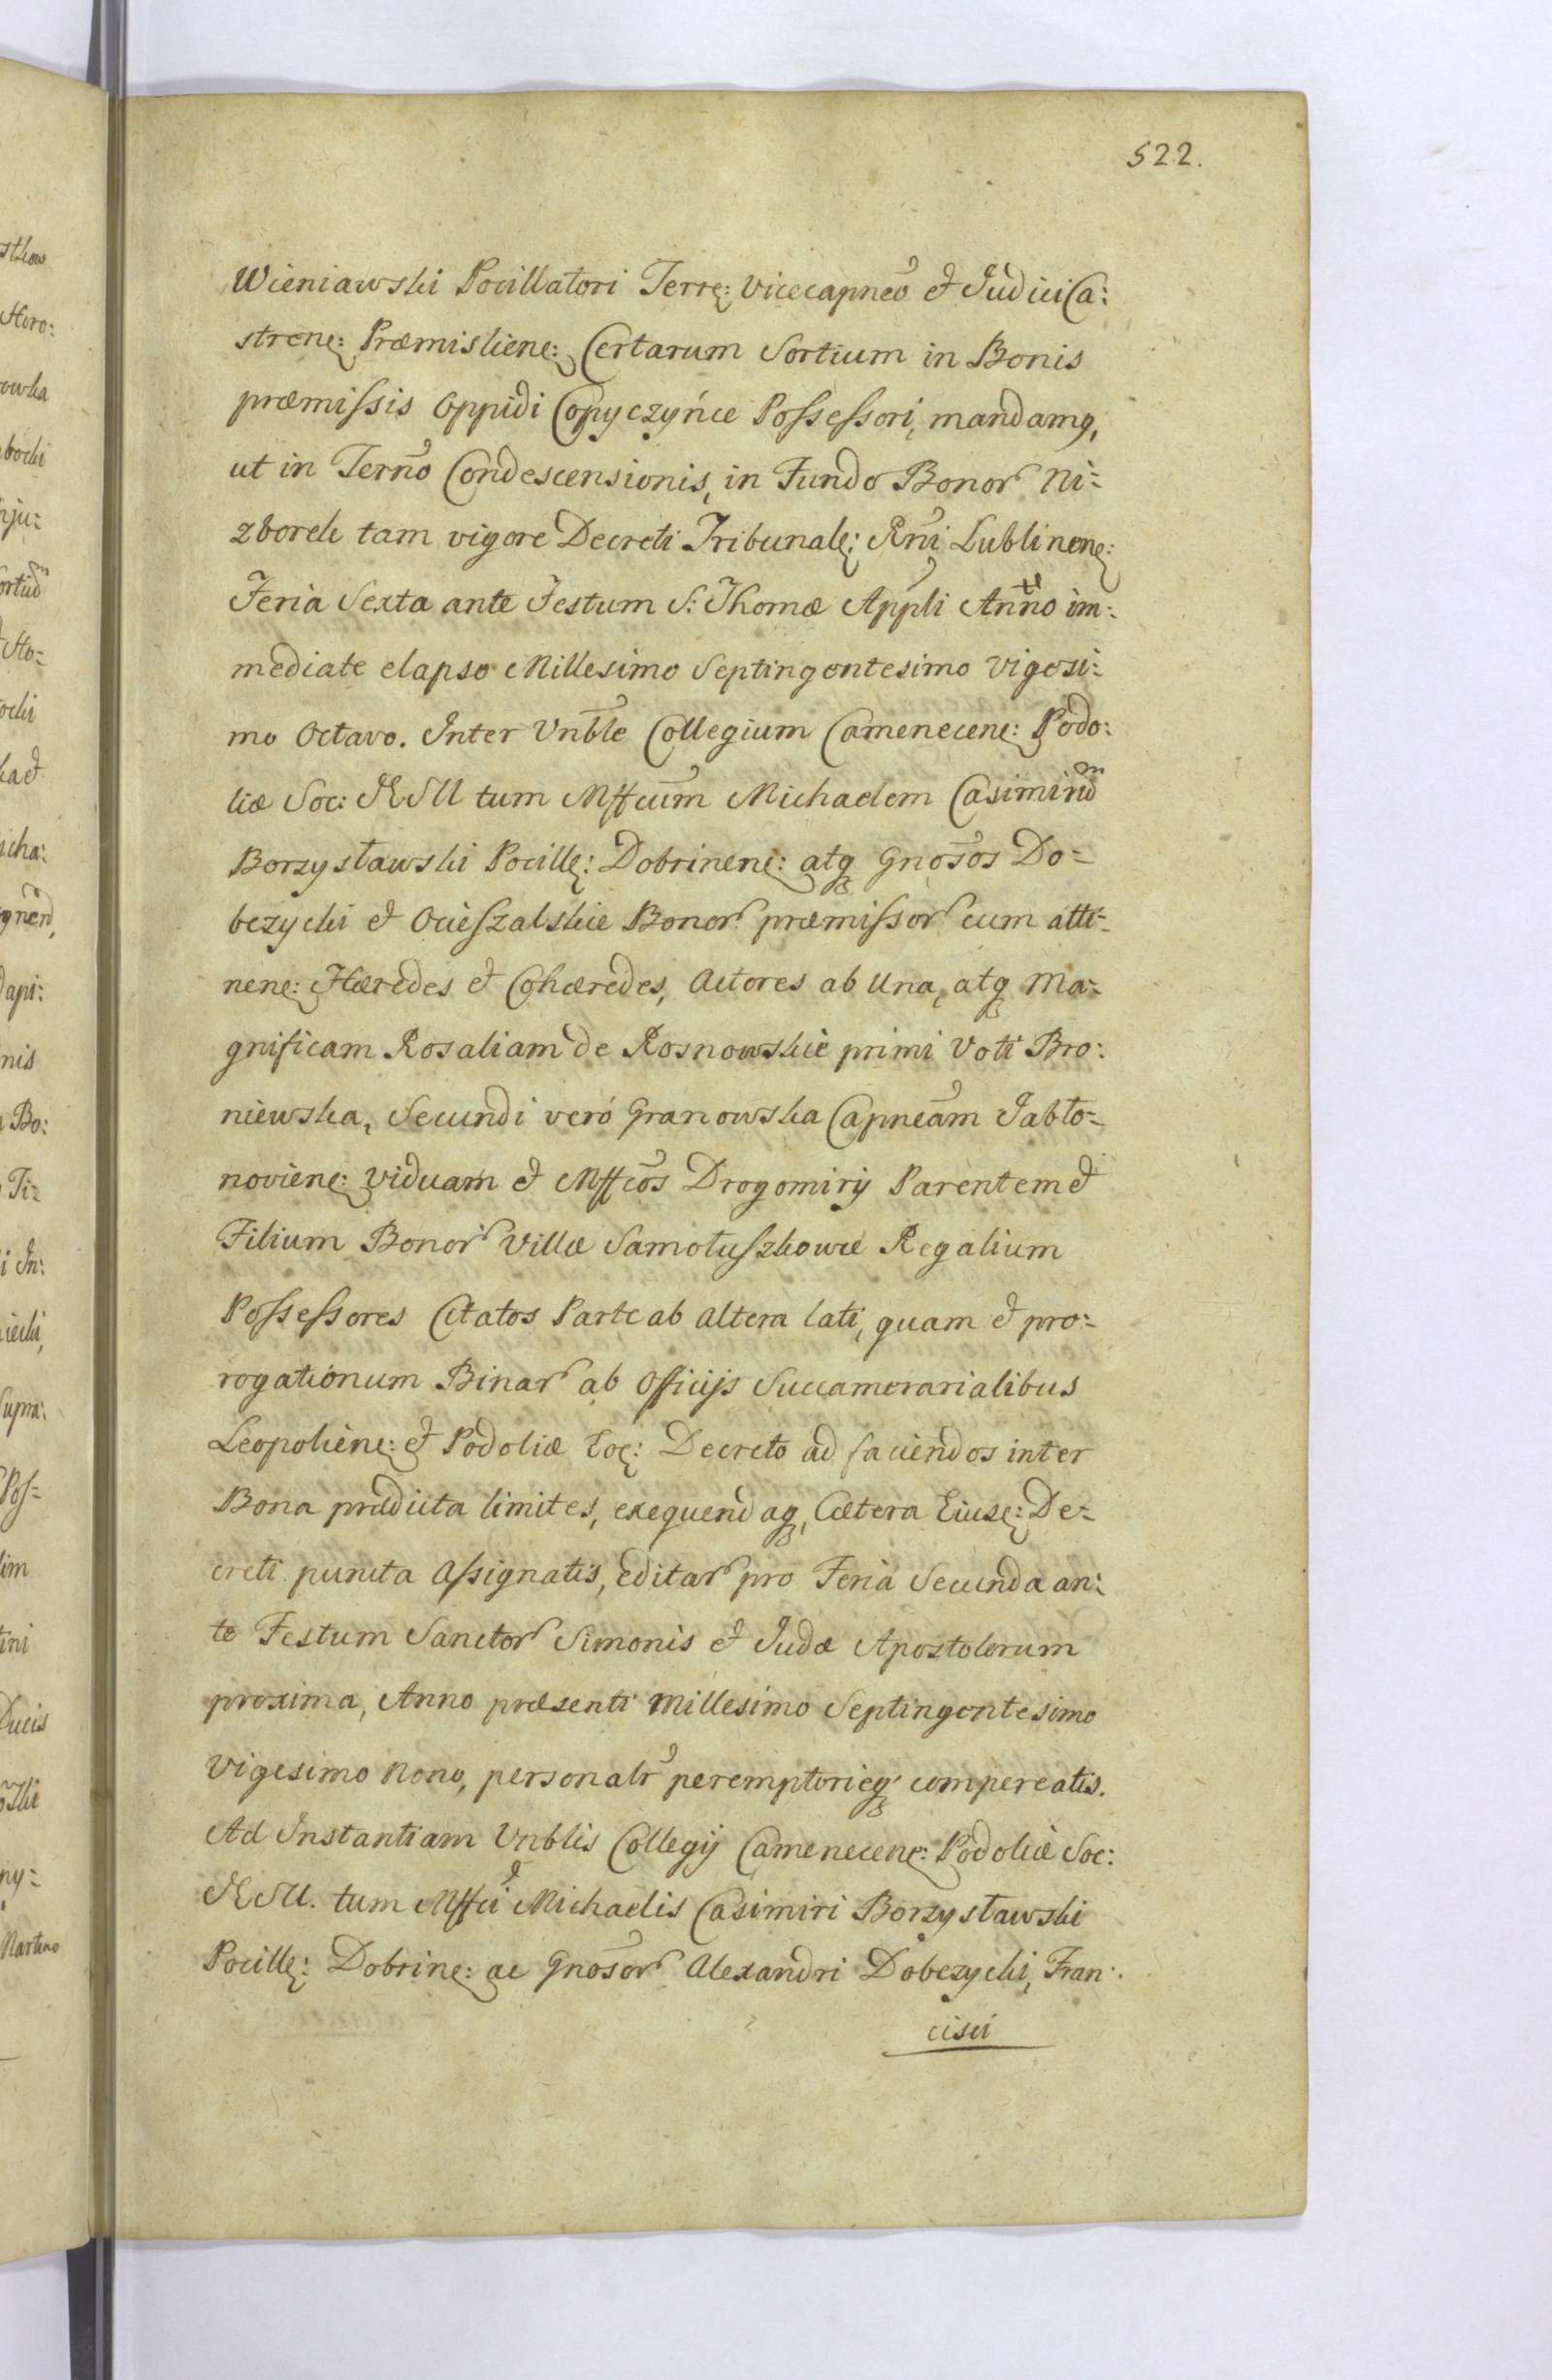 522.
Wieniawski Pocillatori Terrę: Vicecapneo et Judici Ca:
strenę: Præmislienę: Certarum Sortium in Bonis
præmissis Oppidi Copyczyńce Possessori, mandamq,
ut in Termo Condescensionis, in Fundo Bonor Ni-
zborek tam vigore Decreti Tribunalę: Rni Lublinenę:
Feria Sexta ante Festum S: Thomæ Appli Anno im:
mediate elapso Millesimo Septingentesimo Vigesi-
mo Octavo. Inter Vnble Collegium Camenecenę: Podo:
liæ Soc: JESU tum Mffcum Michaelem Casimirum
Borzysławski Pocillę: Dobrinenę: atq Gnosos Do-
bczycki et Ocieszalskie Bonor præmissor cum atti-
nenę: Hæredes et Cohæredes, Actores ab Una, atq Ma-
gnificam Rosaliam de Rosnowskie primi Voti Bro:
niewska, Secundi veró Granowska Capneam Jabło-
novienę: Viduam et Mffcos Drogomirÿ Parentem et
Filium Bonor Villæ Samołuszkowce Regalium
Possessores Citatos Parte ab altera lati, quam et pro:
rogationum Binar ab Officÿs Succamerarialibus
Leopolienę: et Podoliæ Eoę: Decreto ad faciendos inter
Bona prædicta limites, exequendaq, Cætera Eiusę: De-
creti puncta Assignatis, Editar pro Feria Secunda an:
te Festum Sanctor Simonis et Judæ Apostolorum
proxima, Anno præsenti Millesimo Septingentesimo
Vigesimo Nono, personalr peremptorieq compereatis.
Ad Instantiam Vnblis Collegÿ Camenecenę: Podoliæ Soc:
JESU. tum Mffci Michaelis Casimiri Borzysławski
Pocillę: Dobrinę: ac Gnosor Alexandri Dobczycki, Fran:
cisci